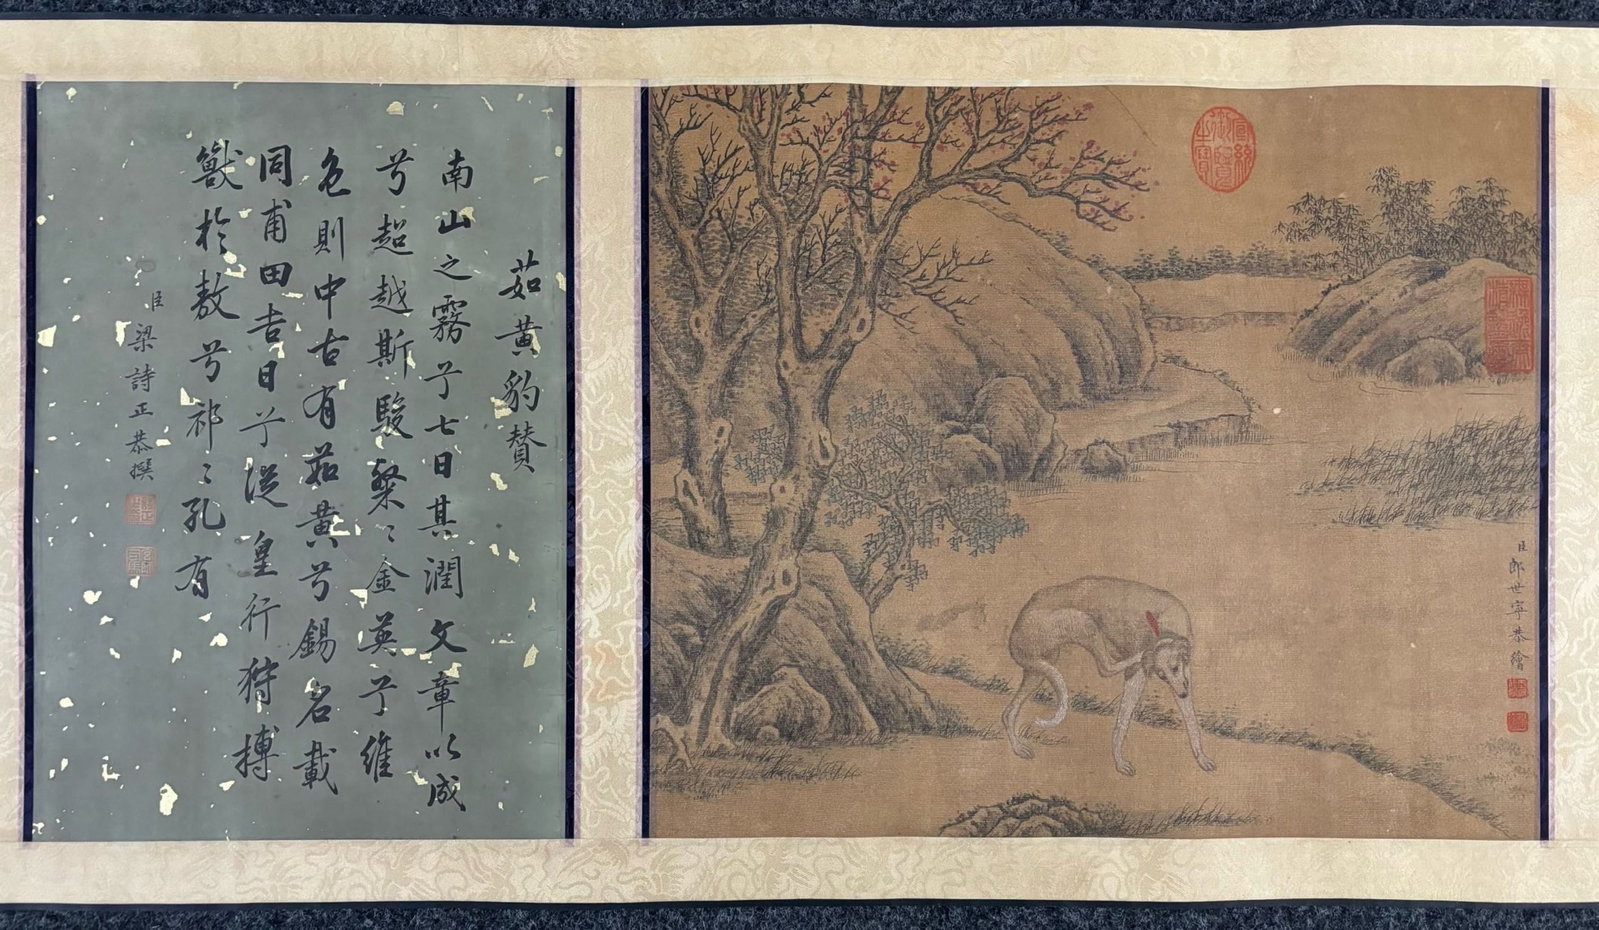 臣郎世寧恭繪
茹黃豹贊
南山之霧兮七日其潤文章以成
兮超越斯駿槃〻金英兮維
色則中古有茹黃兮錫名載
同甫田吉日兮從皇行狩搏
獸於敖兮祁〻孔有
臣梁詩正恭撰